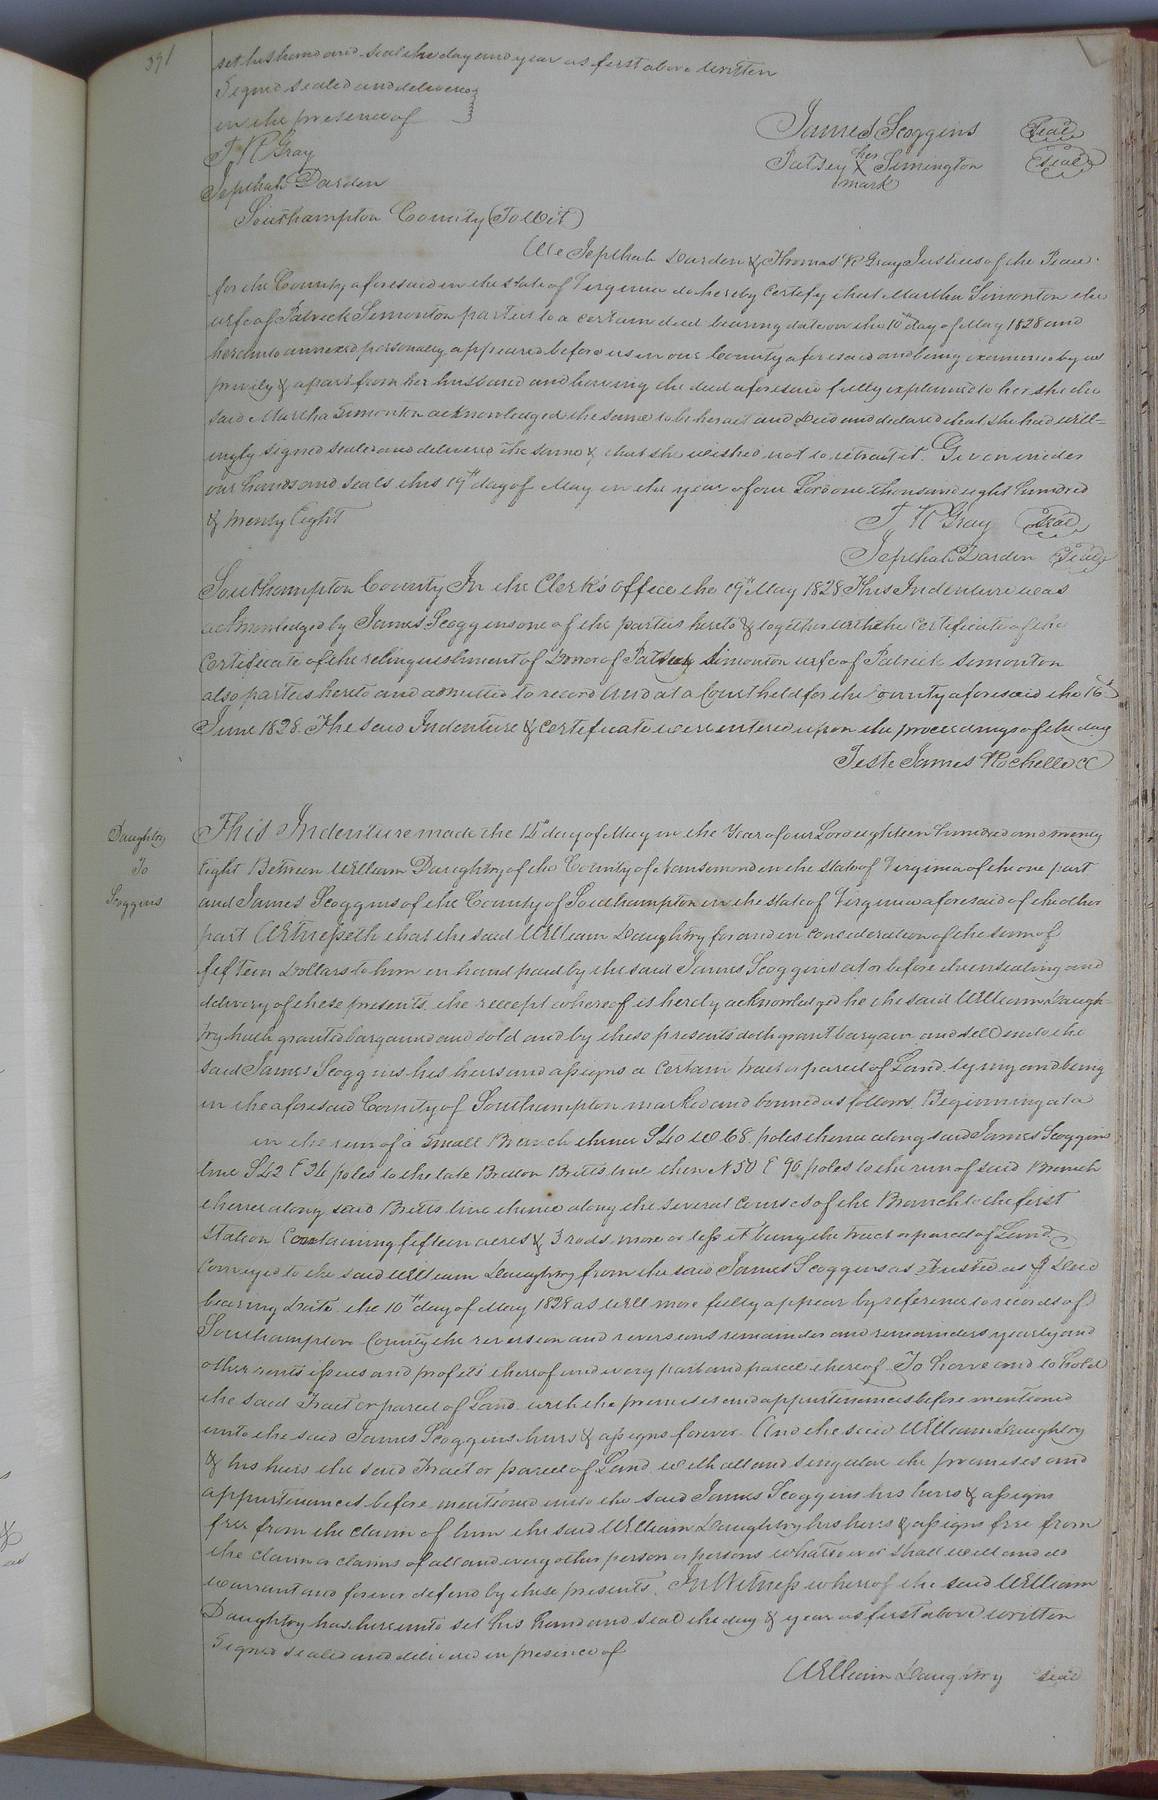 391
set his hand and seal the day and year as first above written
Signed sealed and delivered
in the presence of
James Scoggins Seal
T. R Gray
Patsey her X mark Simington seal
Jephthah Darden
Southampton County (To Wit)
We Jepthah Darden & Thomas R Gray Justices of the Peace
for the County aforesaid in the state of Virginia do hereby certify that Martha Simonton the
wife of Patrick Simonton parties to a certain deed bearing date on the 10th day of May 1828 and
hereunto annexed personally appeared before us in our County aforesaid and being examined by us
privily & apart from her husband and having the deed aforesaid fully explained to her she the
said Martha Simonton acknowledged the same to be her act and Deed and declared that she had will=
ingly signed sealed and delivered the same & that she wished not to retract it. Given under
our hands and seals this 19th day of May in the year of our Lord one thousand eight hundred
& twenty Eight
T. R Gray Seal
Jepthah Darden Seal
Southampton County In the Clerk's office the 19th May 1828 This Indenture was
acknowledged by James Scoggins one of the parties hereto & together with the Certificate of the
Certificate of the relinquishment of Dower of Patsey Simonton wife of Patrick Simonton
also parties hereto and admitted to record And at a Court held for the County aforesaid the 16th
June 1828. The said Indenture & certificate were entered upon the proceedings of the day
Teste James Rochelle CC
Daughtry
To
Scoggins
This Indenture made the day of May in the Year of our Lord eighteen hundred and twenty
Eight Between William Daughtry of the County of Nansemond in the state of Virginia of the one part
and James Scoggins of the County of Southampton in the state of Virginia aforesaid of the other
part Witnesseth that the said William Daughtry for and in consideration of the sum of
fifteen Dollars to him in hand paid by the said James Scoggins at or before the ensealing and
delivery of these presents the receipt whereof is hereby acknowledged he the said William Daugh=
try hath granted bargained and sold and by these presents doth grant bargain and sell unto the
said James Scoggins his heirs and assigns a certain tract or parcel of Land lying and being
in the aforesaid County of Southampton marked and bound as follows Beginning at a
in the run of a Small Branch thence S 40 W 68 poles thence along said James Scoggins
line S 42 E 34 poles to the late Britton Britts line then N 50 E 90 poles to the run of said Branch
thence along said Britts line thence along the several courses of the Branch to the first
station Containing fifteen acres & 3 rods more or less it being the tract or parcel of Land
Conveyed to the said William Daughtry from the said James Scoggins as Trustee as Deed
bearing Date the 10th day of May 1828 as will more fully appear by reference to records of
Southampton County the reversion and reversions remainder and remainders yearly and
other rents issues and profits thereof and every part and parcel thereof To have and to hold
the said Tract or parcel of Land with the premises and appurtenances before mentioned
unto the said James Scoggins heirs & assigns forever And the said William Daughtry
& his heirs the said Tract or parcel of Land with all and singular the premises and
appurtenances before mentioned unto the said James Scoggins his heirs & assigns
free from the claim of him the said William Daughtry his heirs & assigns free from
the claim or claims of all and every other person or persons whatsoever shall will and do
warrant and forever defend by these presents. In Witness whereof the said William
Daughtry has hereunto set his hand and seal the day & year as first above written
Signed sealed and delivered in presence of
William Daughtry seal